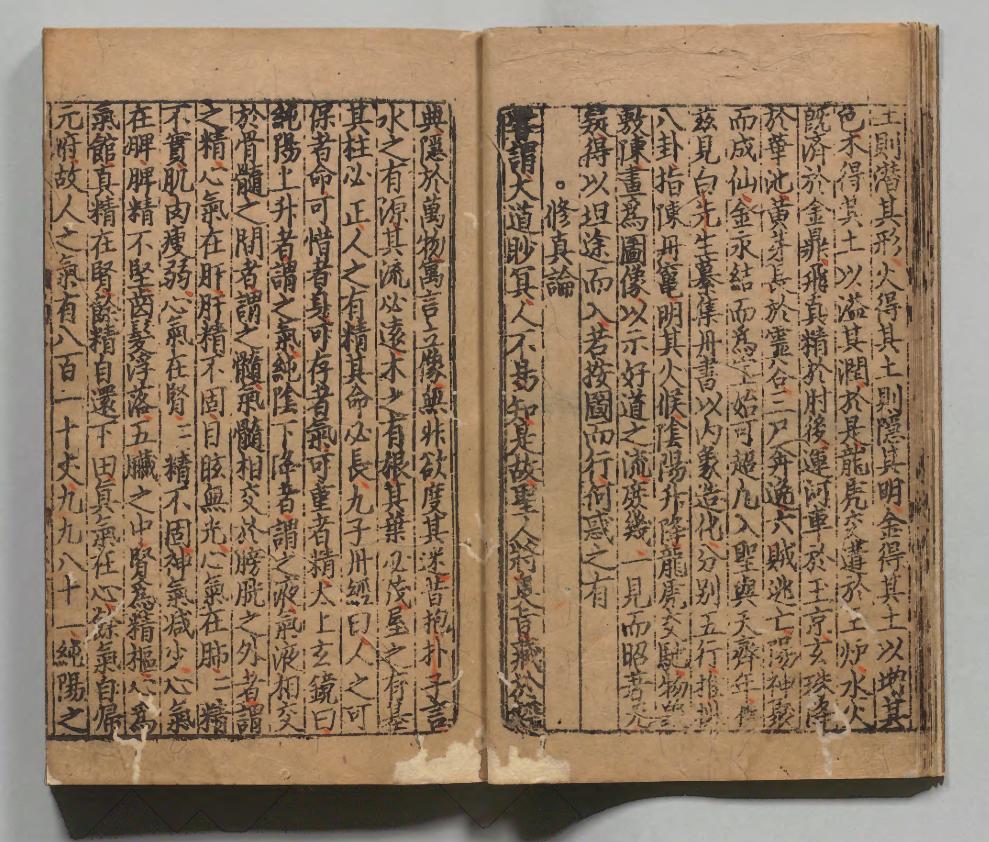 土則潜其形火得其土則隱其明金得其土以增其
色木得其土以溢其潤於是龍虎交遘於土炉水火
既濟於金鼎飛真精於肘後運河車於玉京玄珠降
於華池黄芽長於霊谷三尸奔逸六賊逃亡
而成仙金永結而為 始可超凡入聖與天齊年
兹見白先生纂集丹書以内象造化分別五行推
八卦指陳丹竈明其火候陰陽升降龍虎交馳物
敷陳畫為圖像以示好道之流庶幾一見而昭著
疑得以坦途而入若按圖而行何惑之有
。修真論
謂大道眇冥人不易知是故聖人將 旨藏於
典隱於萬物寓言立像無非欲度其迷昔抱朴子言
水之有源其流必遠木之有根其葉必茂屋之有基
其柱必正人之有精其命必長九子丹經曰人之可
保者命可惜者身可存者氣可重者精太上玄鏡曰
純陽上升者謂之氣純陰下降者謂之液氣液相交
於骨髓之間者謂之髓氣髓相交於膀胱之外者謂
之精心氣在肝肝精不固目眩無光心氣在肺二精
不實肌肉瘦弱心氣在腎三精不固神氣减少心氣
在脾脾精不堅齒髮浮落五臟之中腎為精樞心為
氣館真精在腎餘精自還下田真氣在心餘氣自歸
元府故人之氣有八百一十丈九九八十一純陽之